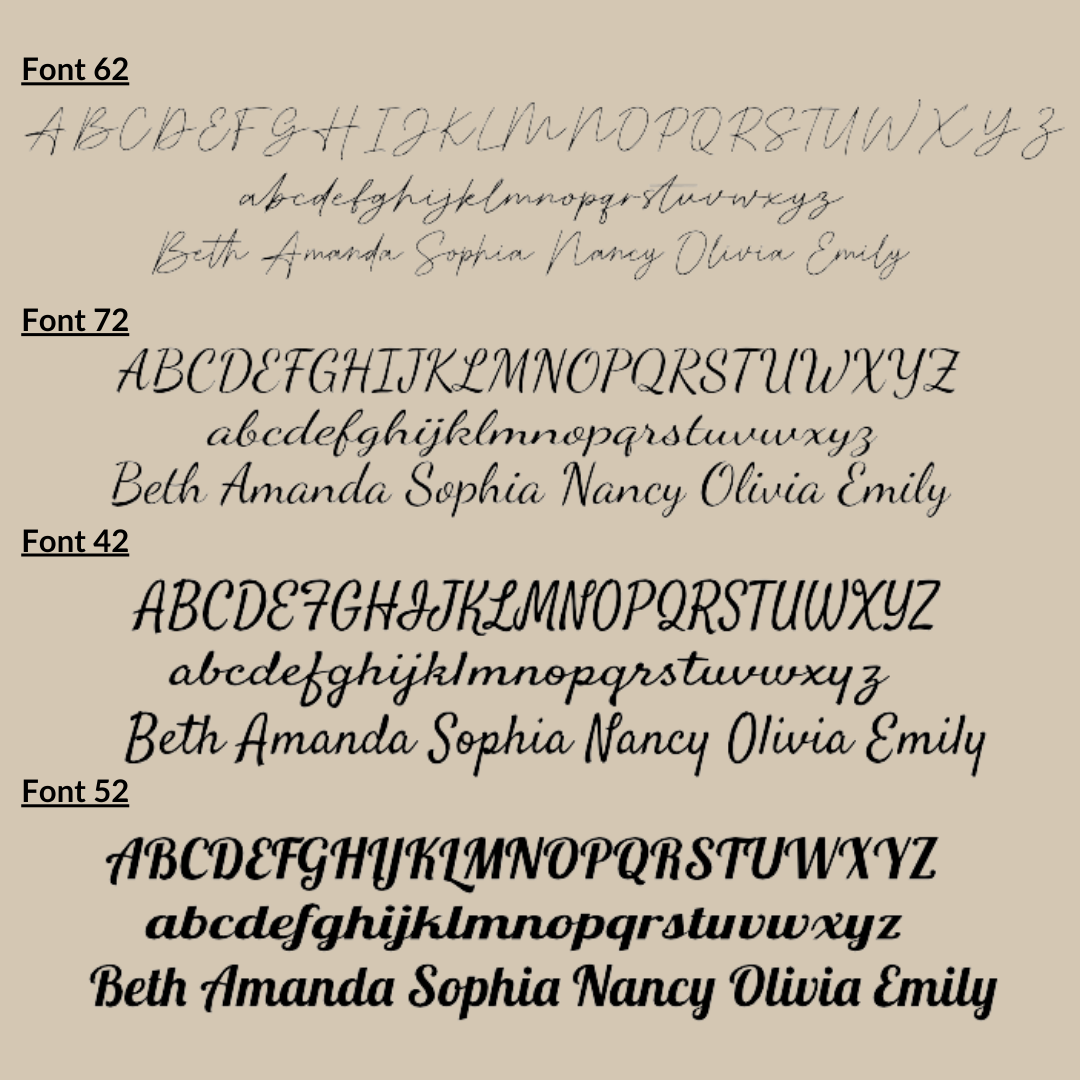 Font 62
ABCDEFGHIJKLMNOPQRSTUWXYZ
abcdefghijklmnopqrstuvwxyz
Beth Amanda Sophia Nancy Olivia Emily
Font 72
ABCDEFGHIJKLMNOPQRSTUWXYZ
abcdefghijklmnopqrstuvwxyz
Beth Amanda Sophia Nancy Olivia Emily
Font 42
ABCDEFGHIJKLMNOPQRSTUWXYZ
abcdefghijklmnopqrstuvwxyz
Beth Amanda Sophia Nancy Olivia Emily
Font 52
ABCDEFGHIJKLMNOPQRSTUWXYZ
abcdefghijklmnopqrstuvwxyz
Beth Amanda Sophia Nancy Olivia Emily